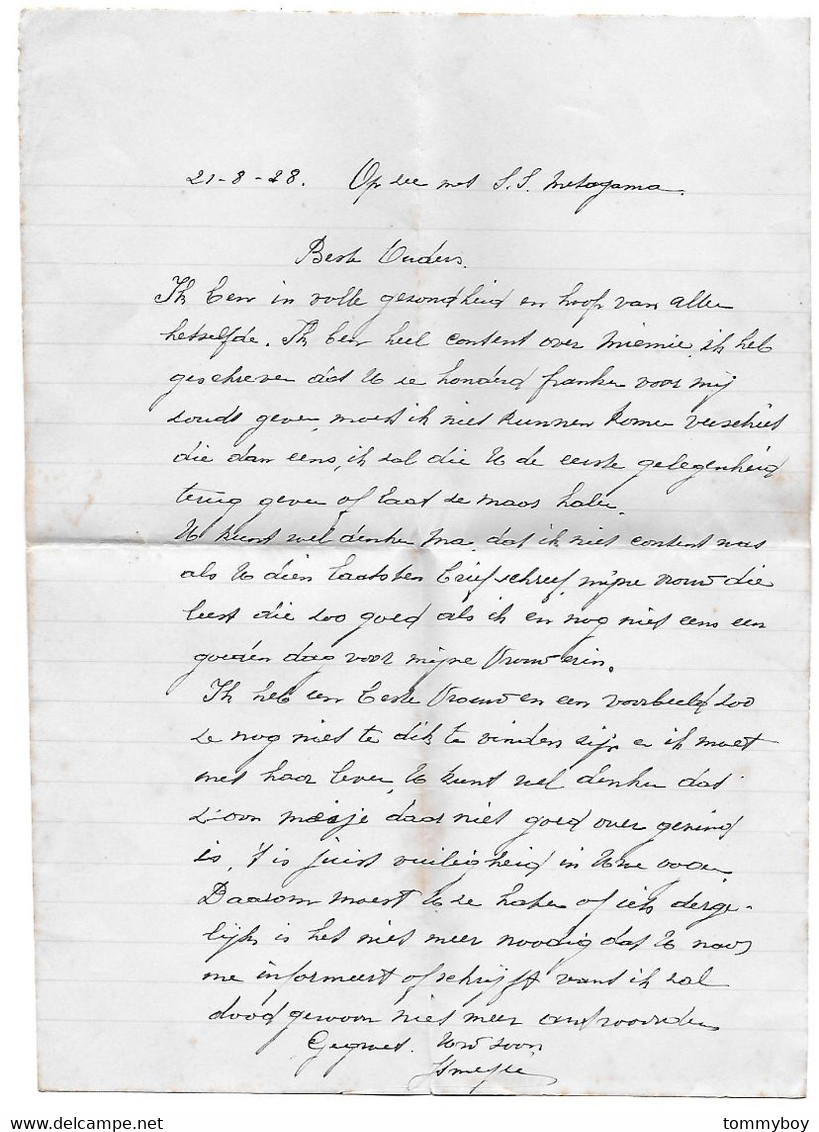 21-8-28. Op zee met S.S. Metagama.
Beste Ouders.
Ik ben in volle gezondheid en hoop van allen
hetzelfde. Ik ben heel content over Miemie, ik heb
geschreven dat U ze honderd franken voor mij
zoudt geven, moest ik niet kunnen komen verschiet
die dan eens, ik zal die U de eerste gelegenheid
terug geven of laat ze maar halen.
U kunt wel denken Ma, dat ik niet content was
als U dien laatsten brief schreef, mijne vrouw die
leest die zoo goed als ik en nog niet eens een
goeden dag voor mijne Vrouw erin.
Ik heb een beste Vrouw en een voorbeeld zoo
ze nog niet te dik te vinden zijn en ik moet
met haar leven, U kunt wel denken dat
z'oon meisje daar niet goed over gezind
is, 't is juist vuiligheid in Uwe oogen
Daarom moest U ze haten of iets derge-
lijks is het niet meer noodig dat U naar
me informeert of schrijft want ik zal
dood gewoon niet meer antwoorden
Gegroet. Uw zoon
delcampe.net
tommyboy